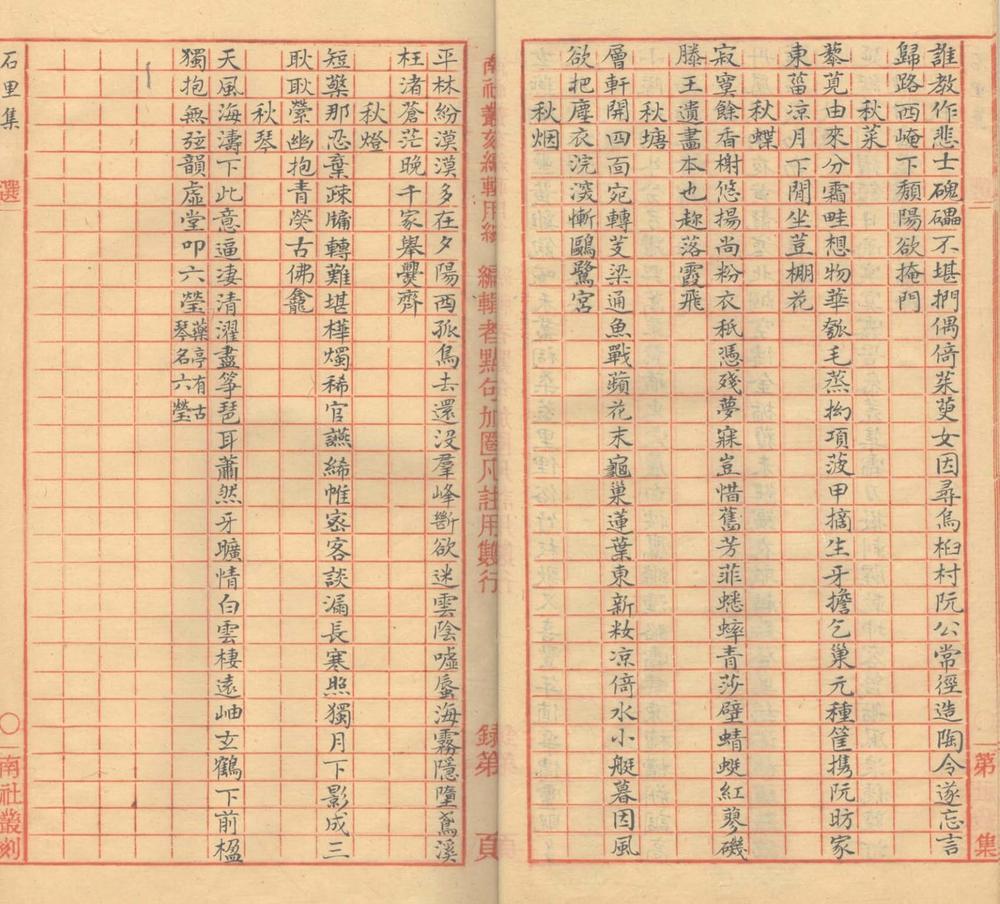 誰教作悲士磈礧不堪捫偶倚茱萸女因尋烏桕村阮公常徑造陶令遂忘言
歸路西崦下頹陽欲掩門
秋菜
藜莧由來分霜畦想物華瓠毛蒸拗項菠甲摘生牙擔乞巢元種筐携阮昉家
東菑凉月下閒坐荳棚花
秋蝶
寂寞餘香榭悠揚尚粉衣秖憑殘夢寐豈惜舊芳菲蟋蟀青莎壁蜻蜓紅蓼磯
滕王遺畫本也趂落霞飛
秋塘
層軒開四面宛轉芰梁通魚戰蘋花末龜巢蓮葉東新籹凉倚水小艇暮因風
欲把塵衣浣漫慚鷗鷺宮
秋烟
平林紛漠漠多在夕陽西孤鳥去還没羣峰斷欲迷雲陰噓蜃海霧隱墮鳶溪
枉渚蒼茫晚千家舉爨齊
秋燈
短檠那忍棄疎牖轉難堪樺燭稀官讌絺帷宻客談漏長寒照獨月下影成三
耿耿縈幽抱青熒古佛龕
秋琴
天風海濤下此意逼淒清濯盡箏琶耳蕭然牙曠情白雲棲遠岫玄鶴下前楹
獨抱無弦韻虛堂叩六瑩藥亭有古琴名六瑩
石里集
選
南社叢刻
第
集
南社叢刻編輯用紙
編輯者點句加圈凡註用雙行
録第
頁